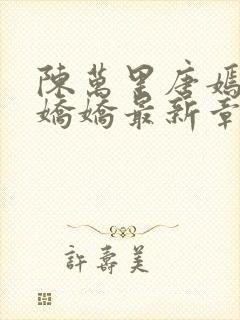 陳萬里唐嫣
嬌嬌最新章
許壽美